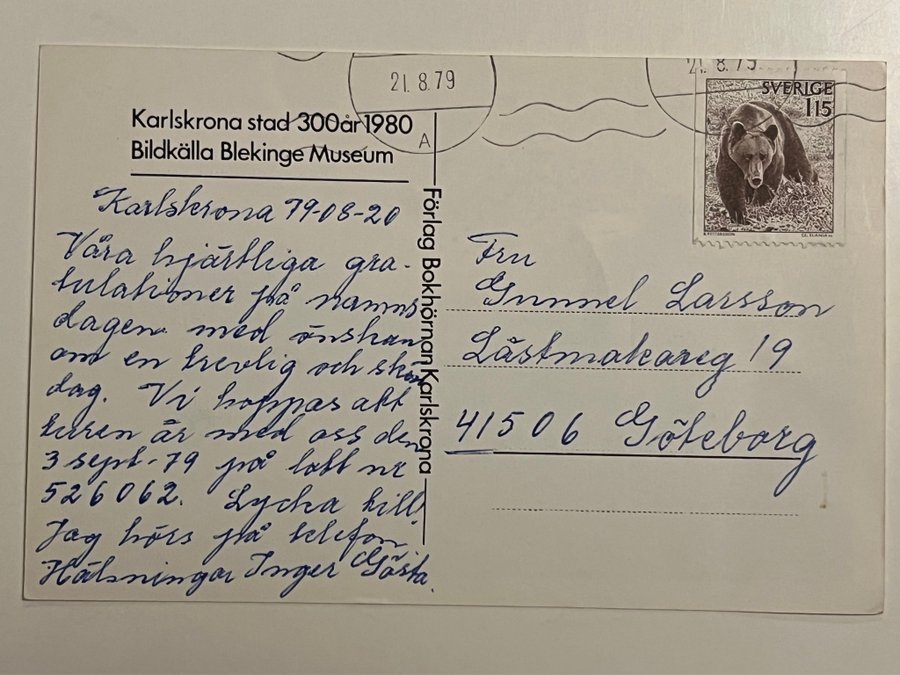 21.8.79
A
21.8.79
SVERIGE
115
Karlskrona stad 300 år 1980
Bildkälla Blekinge Museum
Förlag Bokhörnan Karlskrona
Karlskrona 79-08-20
Våra hjärtliga gra-
tulationer på namns
dagen med önskan
om en trevlig och skön
dag. Vi hoppas att
turen är med oss den
3 sept. -79 på lott nr
526062. Lycka till!
Jag hörs på telefon
Hälsningar Inger Gösta.
Fru
Gunnel Larsson
Lästmakareg 19
41506 Göteborg